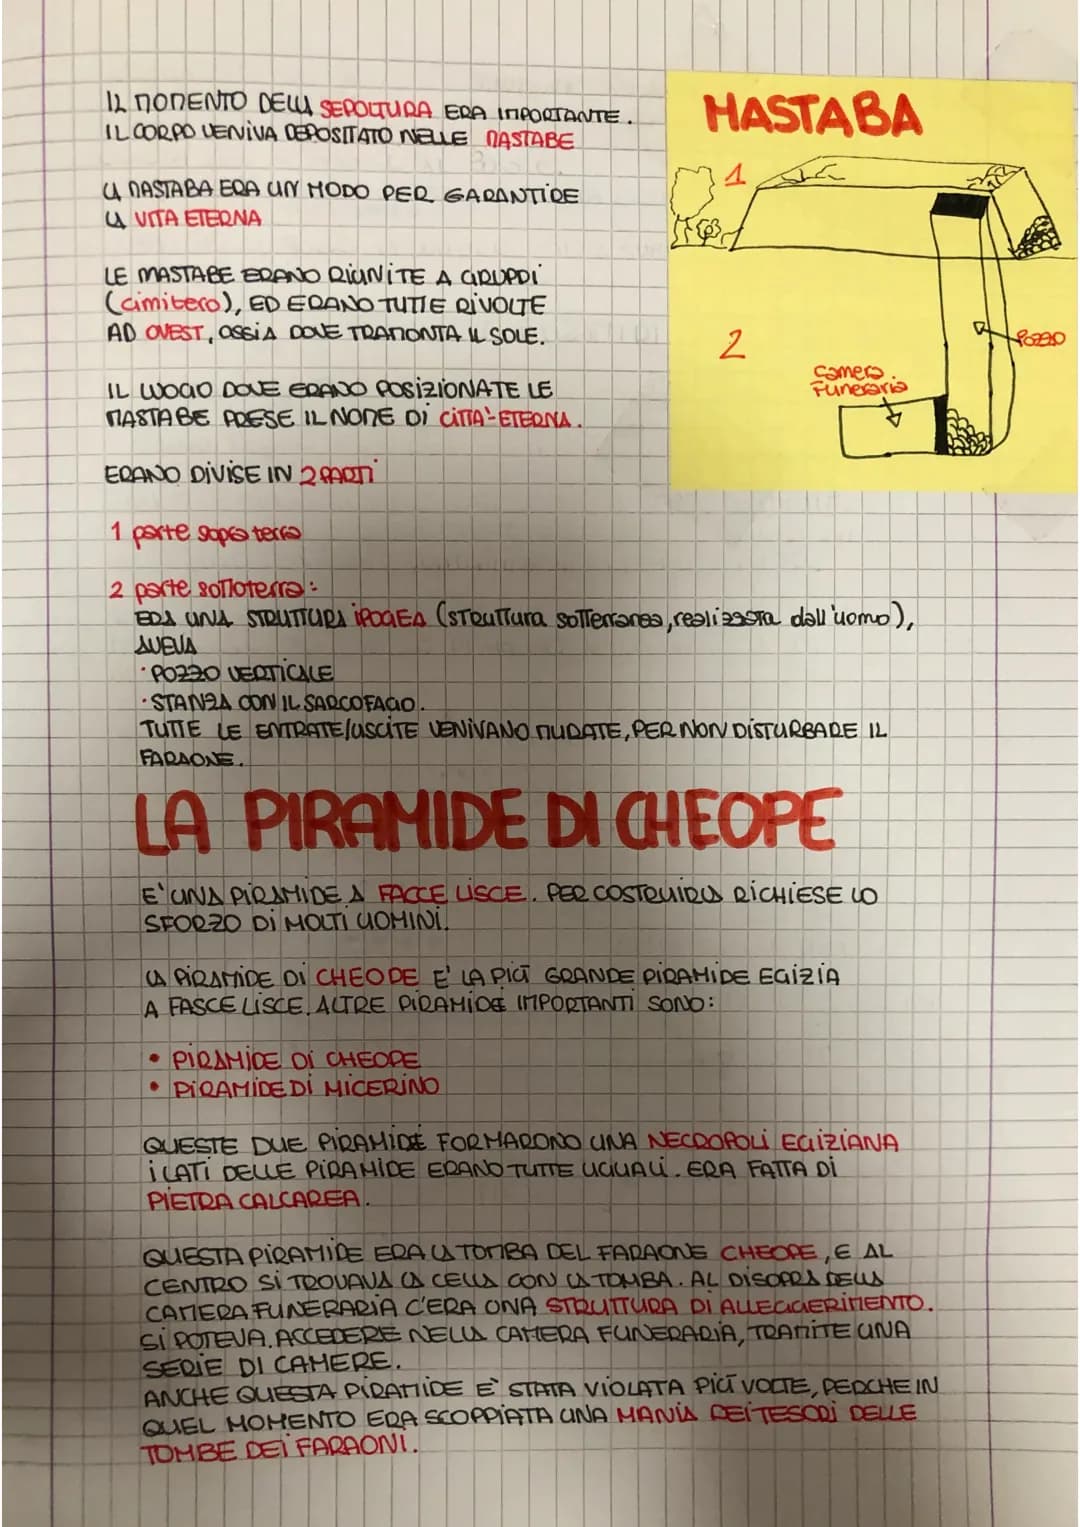 IL MOMENTO DELLA SEPOLTURA ERA IMPORTANTE.
IL CORPO VENIVA DEPOSITATO NELLE MASTABE
LA MASTABA ERA UN MODO PER GARANTIRE
LA VITA ETERNA
LE MASTABE ERANO RIUNITE A GRUPPI
(cimitero), ED ERANO TUTTE RIVOLTE
AD OVEST, OSSIA DOVE TRAMONTA IL SOLE.
IL LUOGO DOVE ERANO POSIZIONATE LE
MASTABE PRESE IL NOME DI CITTA' ETERNA.
ERANO DIVISE IN 2 PARTI
1 parte sopra terra
2 parte sottoterra:
ERA UNA STRUTTURA IPOGEA (struttura sotterranea, realizzata dall'uomo),
AVEVA
· POZZO VERTICALE
· STANZA CON IL SARCOFAGO.
TUTTE LE ENTRATE/USCITE VENIVANO MURATE, PER NON DISTURBARE IL
FARAONE.
MASTABA
1
2
POZZO
Camera
Funeraria
LA PIRAMIDE DI CHEOPE
E' UNA PIRAMIDE A FACCE LISCE. PER COSTRUIRLA RICHIESE LO
SFORZO DI MOLTI UOMINI.
LA PIRAMIDE DI CHEOPE E' LA PIÙ GRANDE PIRAMIDE EGIZIA
A FASCE LISCE. ALTRE PIRAMIDE IMPORTANTI SONO:
• PIRAMIDE DI CHEOPE
• PIRAMIDE DI MICERINO
QUESTE DUE PIRAMIDE FORMARONO UNA NECROPOLI EGIZIANA
I LATI DELLE PIRAMIDE ERANO TUTTE UGUALI. ERA FATTA DI
PIETRA CALCAREA.
QUESTA PIRAMIDE ERA LA TOMBA DEL FARAONE CHEOPE, E AL
CENTRO SI TROVAVA LA CELLA CON LA TOMBA. AL DISOPRA DELLA
CAMERA FUNERARIA C'ERA UNA STRUTTURA DI ALLEGGERIMENTO.
SI POTEVA ACCEDERE NELLA CAMERA FUNERARIA, TRAMITE UNA
SERIE DI CAMERE.
ANCHE QUESTA PIRAMIDE E' STATA VIOLATA PIÙ VOLTE, PERCHE IN
QUEL MOMENTO ERA SCOPPIATA UNA MANIA DEI TESORI DELLE
TOMBE DEI FARAONI.